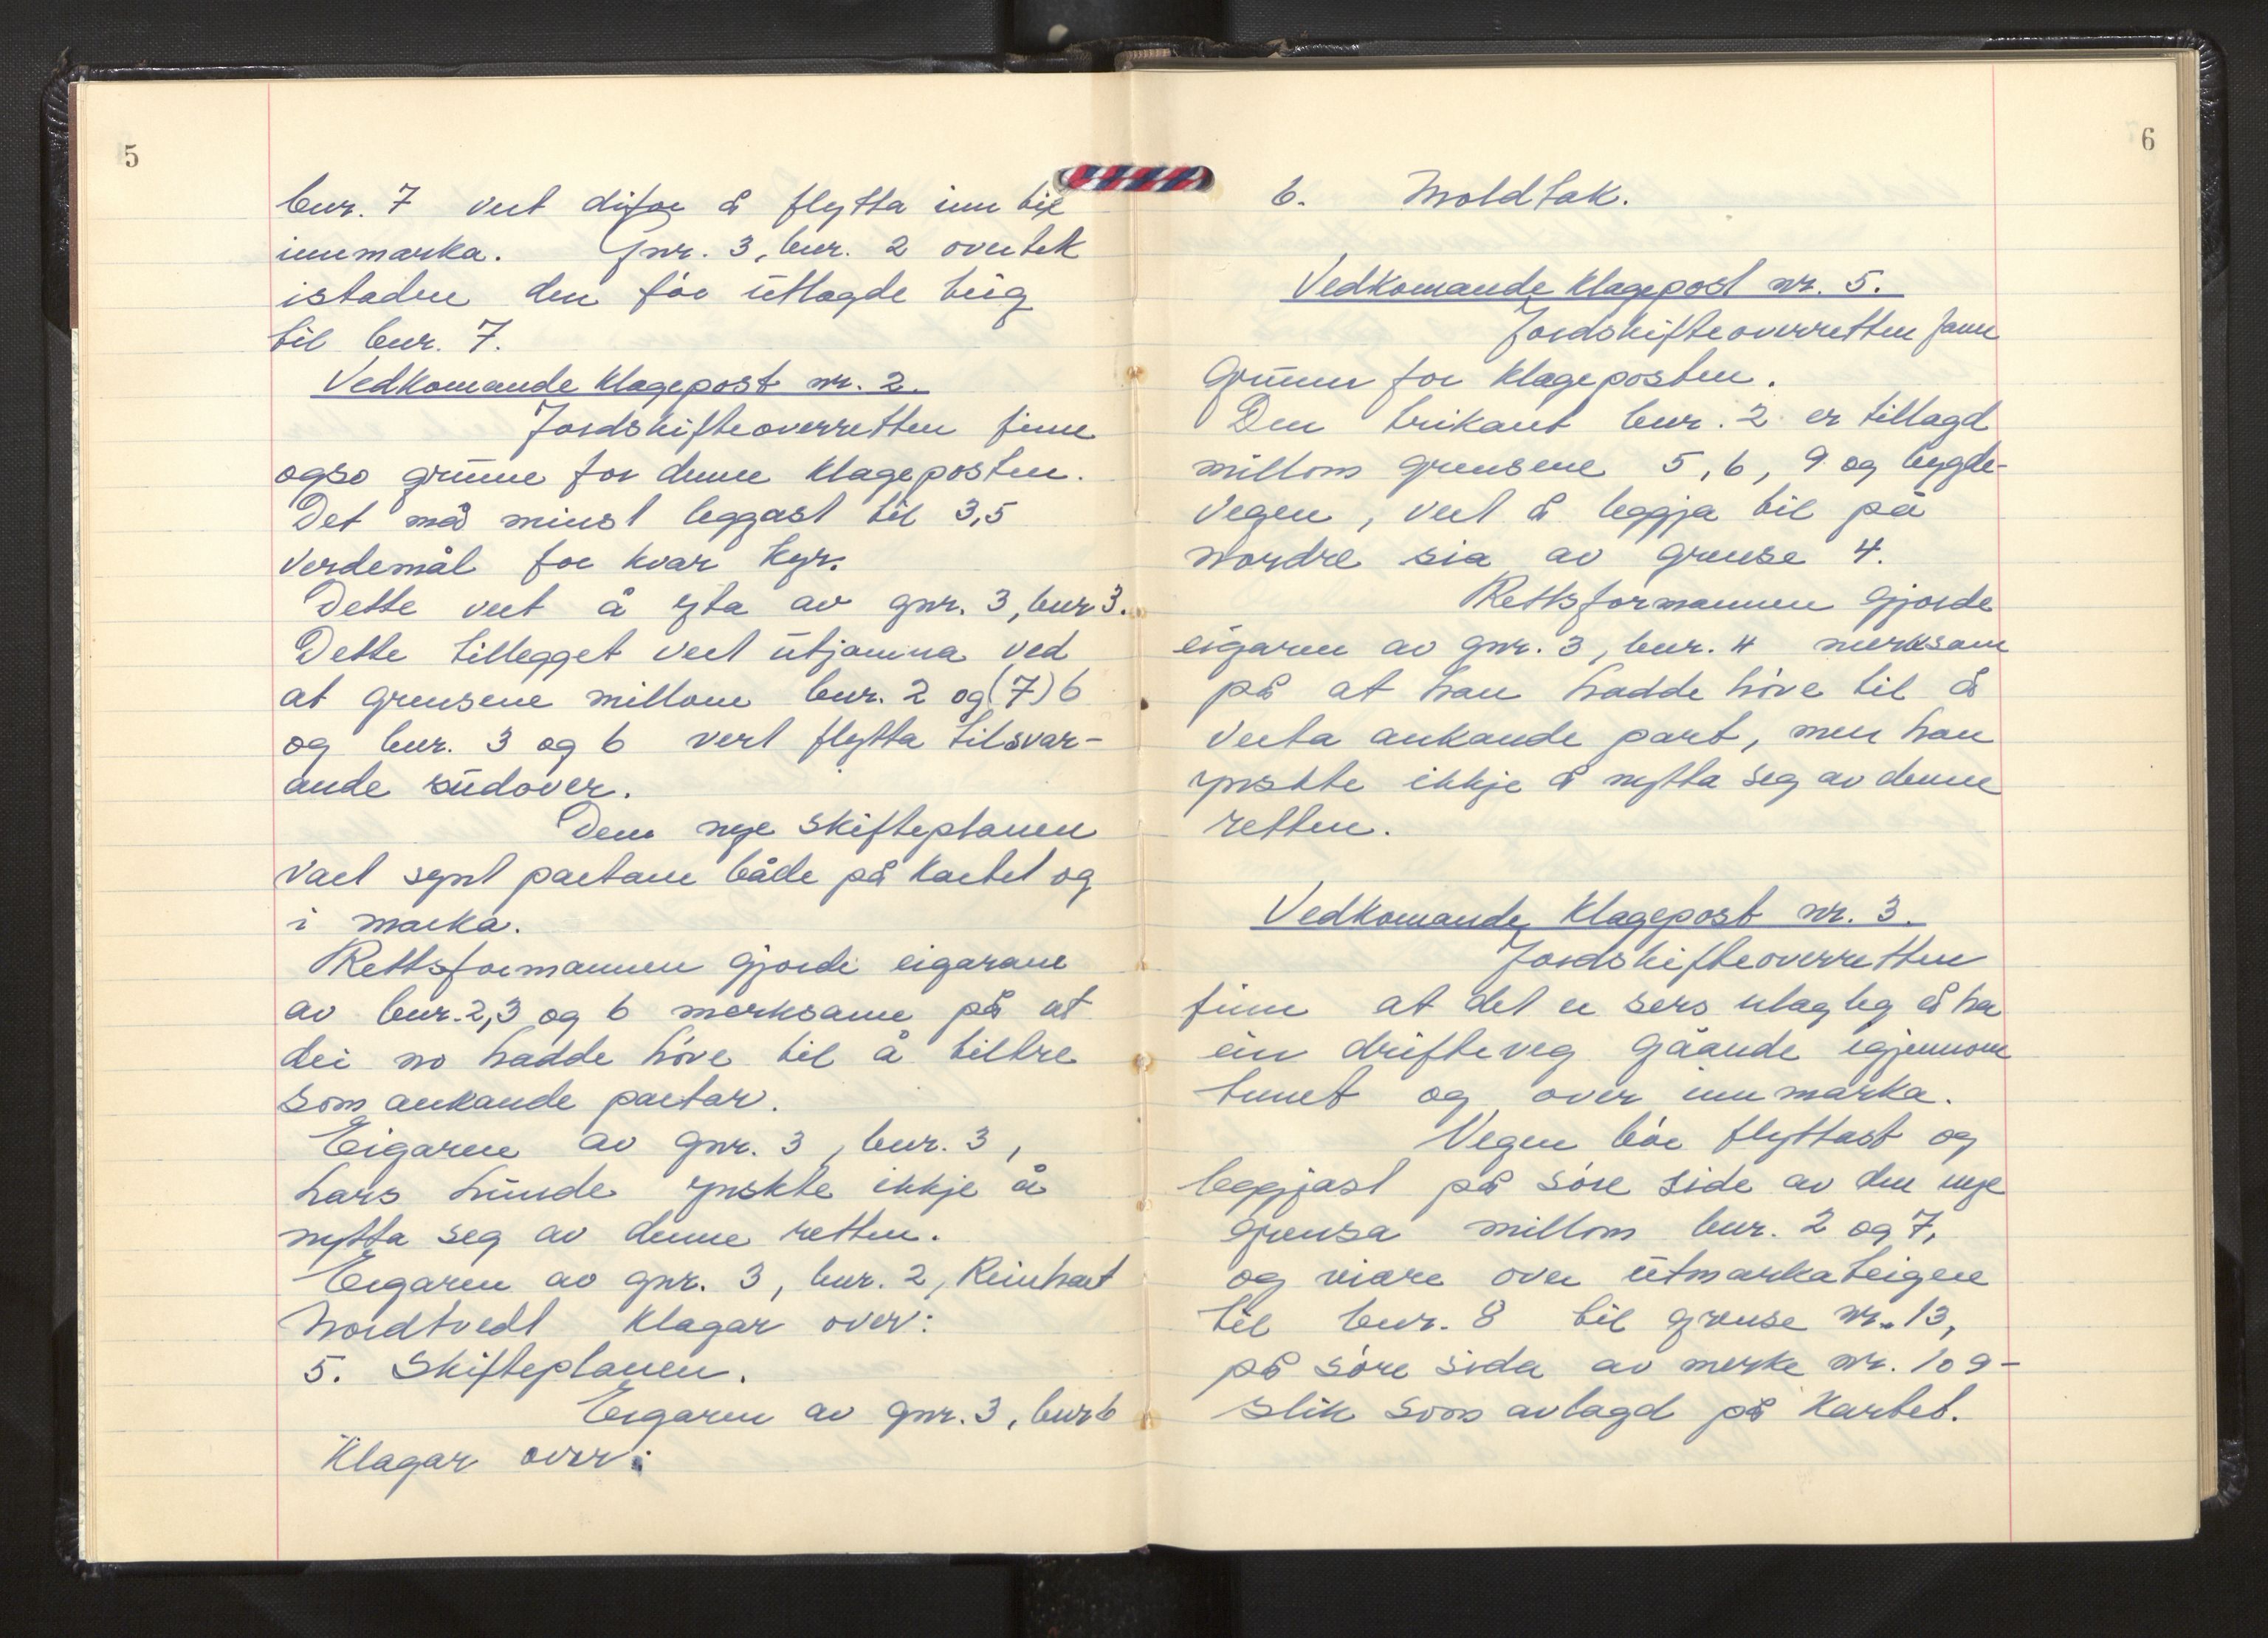 5
bnr. 7 vert difor å flytta inn til
innmarka. Gnr. 3, bnr. 2 overtek
istaden den før utlagde teig
til bnr. 7.
Vedkomande klagepost nr. 2.
Jordskifteoverretten finn
ogso grunn for denne klageposten.
Det må minst leggast til 3,5
verdemål for kvar kyr.
Dette vert å yta av gnr. 3, bnr 3.
Dette tillegget vert utjamna ved
at grensene millom bnr. 2 og (7) 6
og bnr. 3 og 6 vert flytta tilsvar-
ande sudover.
Den nye skifteplanen
vart synt partane både på kartet og
i marka.
Rettsformannen gjorde eigarane
av bnr. 2, 3 og 6 merksame på at
dei no hadde høve til å tiltre
som ankande partar.
Eigaren av gnr. 3, bnr. 3,
Lars Lunde ynskte ikkje å
nytta seg av denne retten.
Eigaren av gnr. 3, bnr. 2, Reinhart
Nordtvedt klagar over:
5. Skifteplanen.
Eigaren av gnr. 3, bnr 6
klagar over:
6
6. Moldtak.
Vedkomande klagepost nr. 5.
Jordskifteoverretten fann
grunn for klageposten.
Den trikant bnr. 2 er tillagd
millom grensene 5, 6, 9 og bygde-
vegen, vert å leggja til på
nordre sia av grense 4.
Rettsformannen gjorde
eigaren av gnr. 3, bnr. 4 merksam
på at han hadde høve til å
verta ankande part, men han
ynskte ikkje å nytta seg av denne
retten.
Vedkomande klagepost nr. 3.
Jordskifteoverretten
finn at det er sers ulagleg å ha
ein drifteveg gåande igjennom
tunet og over innmarka.
Vegen bør flyttast og
leggjast på søre side av den nye
grensa millom bnr. 2 og 7,
og viare over utmarkateigen
til bnr. 8 til grense nr. 13,
på søre sida av merke nr. 109 -
slik som avlagd på kartet.